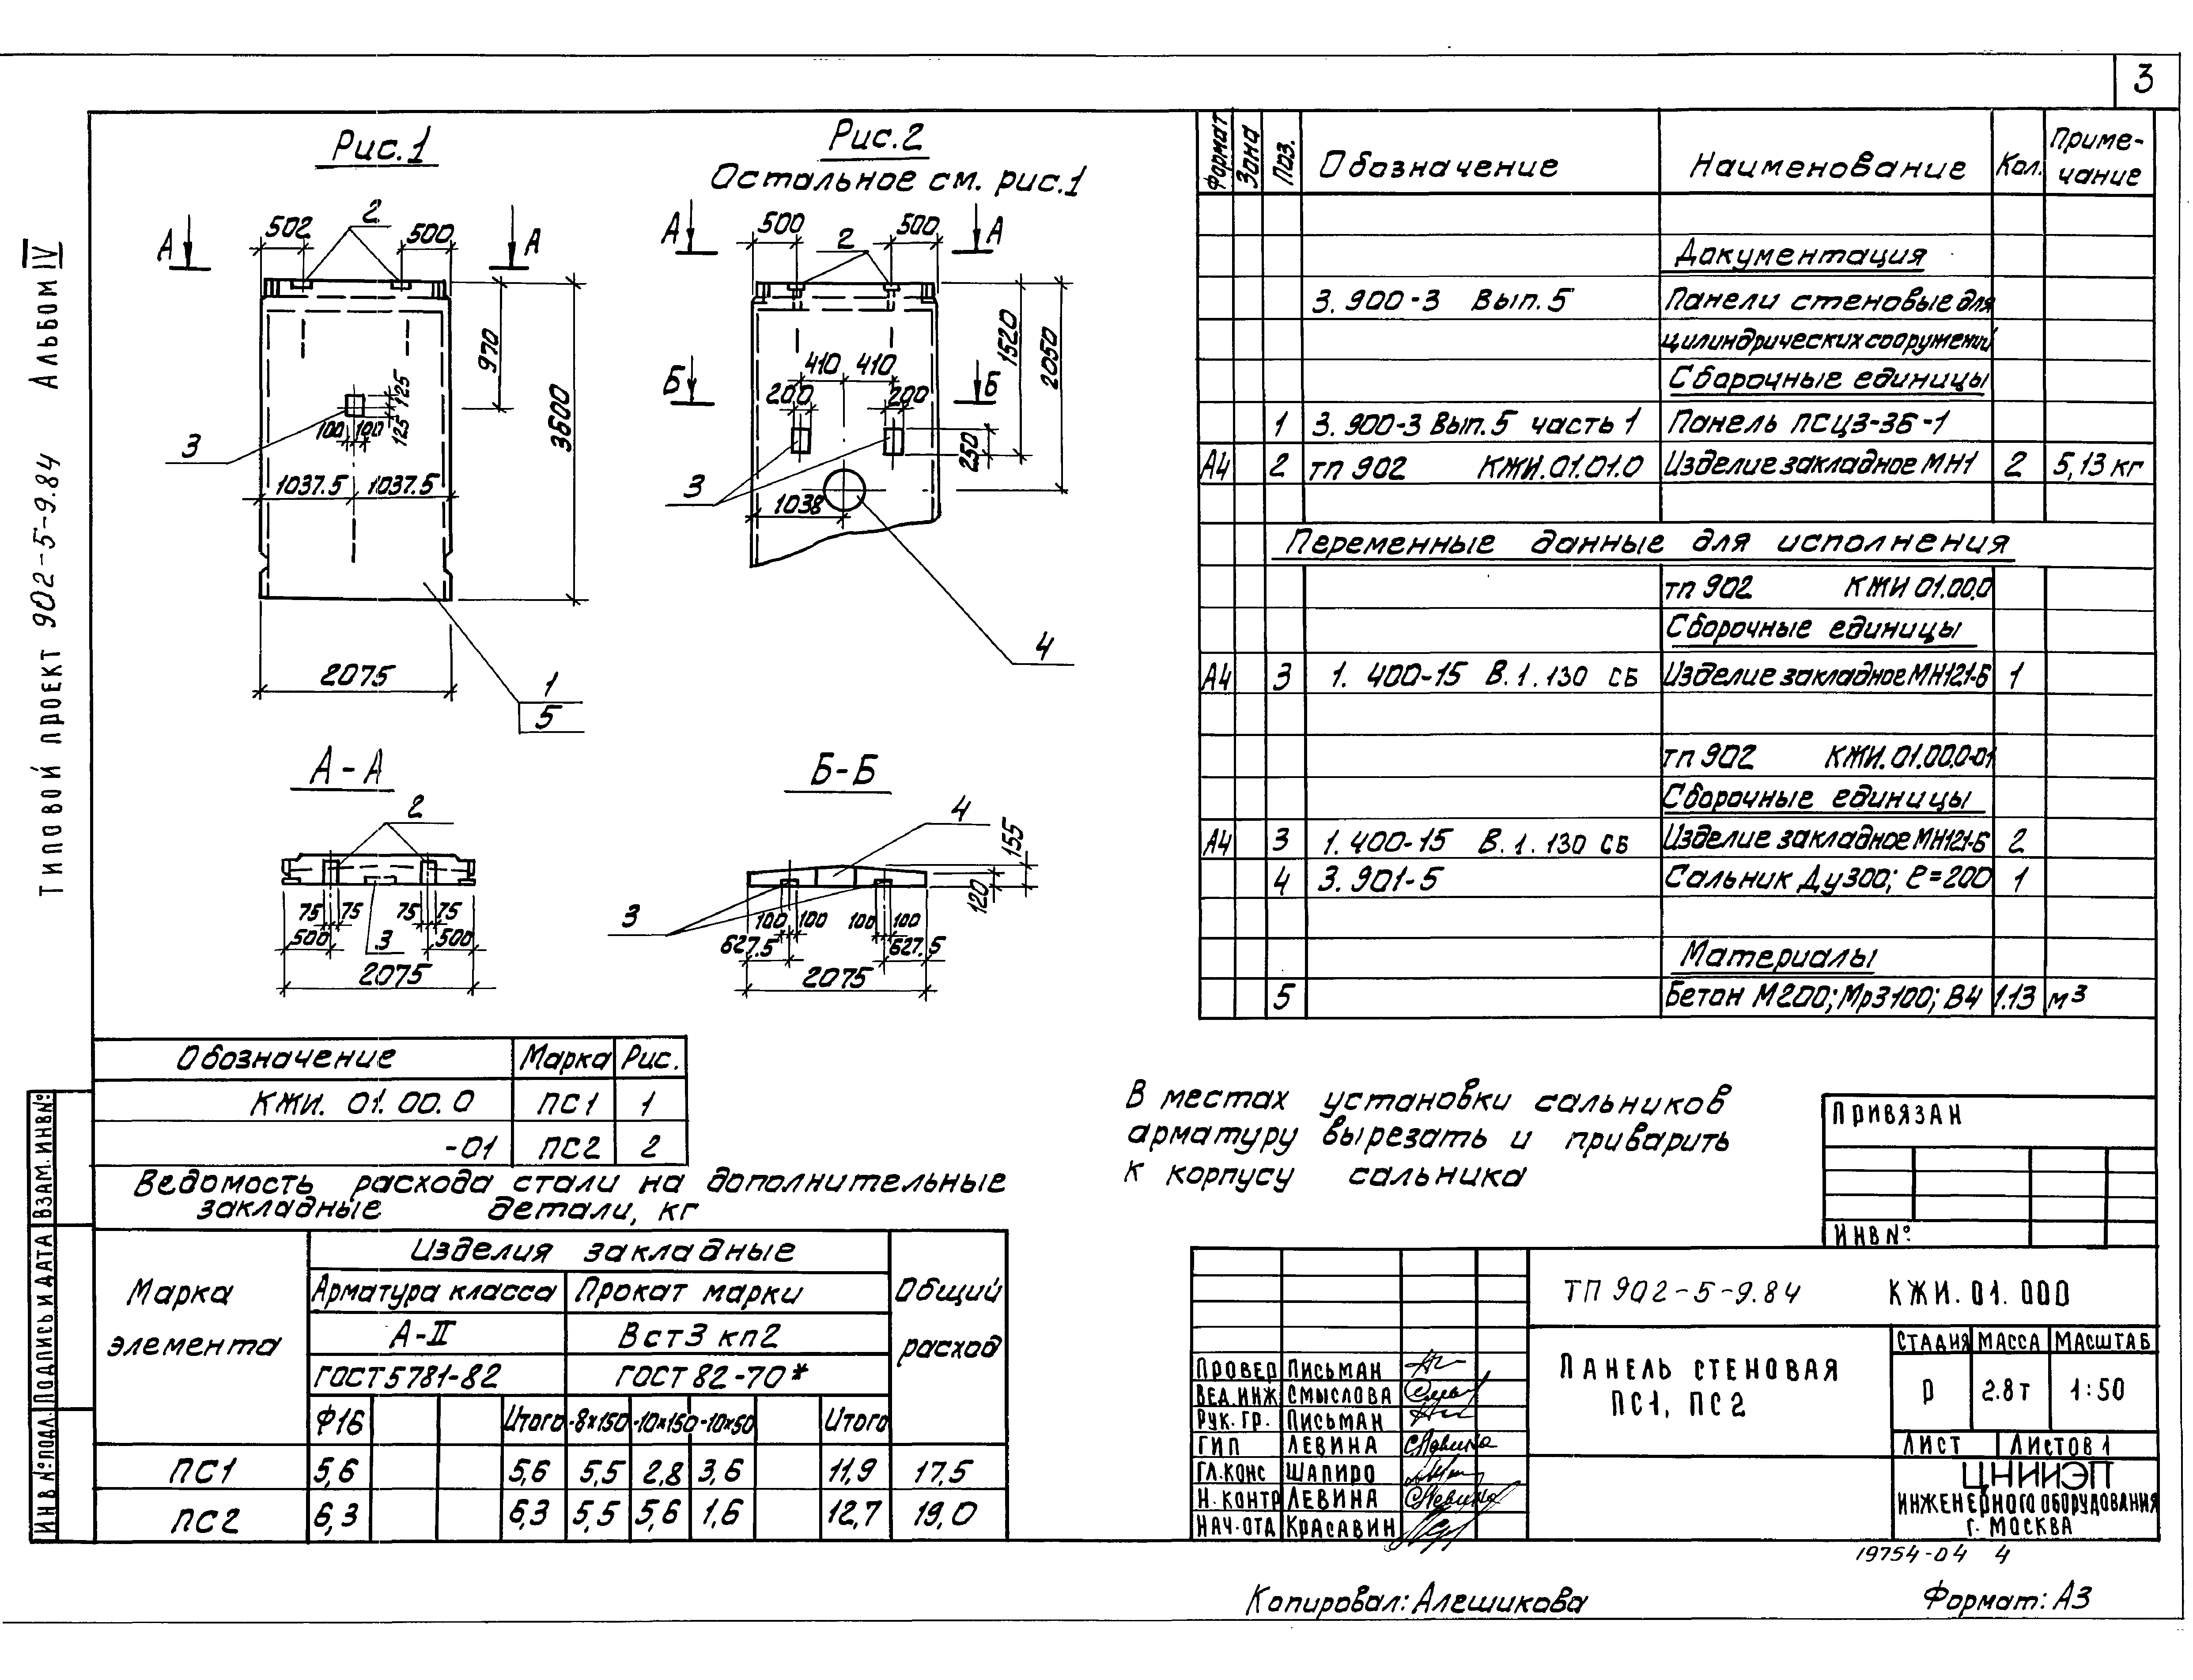 3
Типовой проект 902-5-9.84 Альбом IV
Рис.1
Рис.2
Остальное см. рис.1
А
502
2
500
А
970
3600
125
125
100
100
3
1037.5
1037.5
2075
1
5
А
500
2
500
А
1520
2050
410
410
Б
200
200
Б
250
3
1038
4
А-А
2
75
75
75
75
500
3
500
2075
Б-Б
4
155
120
3
100
100
100
100
627.5
627.5
2075
Формат
Зона
Поз.
Обозначение
Наименование
Кол.
Приме-
чание
Документация
3.900-3 Вып.5 Панели стеновые для
цилиндрических сооружений
Сборочные единицы
1 3.900-3 Вып.5 часть 1 Панель ПСЦ3-36-1
А4 2 тп 902 КЖИ.01.01.0 Изделие закладное МН1 2 5,13 кг
Переменные данные для исполнения
тп 902 КЖИ 01.00.0
Сборочные единицы
А4 3 1.400-15 В.1.130 СБ Изделие закладное МН121-6 1
тп 902 КЖИ.01.00.0-01
Сборочные единицы
А4 3 1.400-15 В.1.130 СБ Изделие закладное МН121-6 2
4 3.901-5 Сальник Ду300; ℓ=200 1
Материалы
5 Бетон М200; Мрз100; В4 1.13 м³
Обозначение Марка Рис.
КЖИ. 01.00.0 ПС1 1
-01 ПС2 2
Ведомость расхода стали на дополнительные
закладные детали, кг
Марка
элемента
Изделия закладные
Общий
расход
Арматура класса Прокат марки
А-II Вст3 кп2
ГОСТ 5781-82 ГОСТ 82-70*
Ф16 Итого -8х150 -10х150 -10х50 Итого
ПС1 5,6 5,6 5,5 2,8 3,6 11,9 17,5
ПС2 6,3 6,3 5,5 5,6 1,6 12,7 19,0
В местах установки сальников
арматуру вырезать и приварить
к корпусу сальника
Привязан
Инв №:
ТП 902-5-9.84 КЖИ. 01. 000
Панель стеновая
ПС1, ПС2
Стадия Масса Масштаб
Р 2.8т 1:50
Лист Листов 1
ЦНИИЭП
инженерного оборудования
г. Москва
Провер Письман
Вед.инж Смыслова
Рук. гр. Письман
ГИП Левина
Гл.конс Шапиро
Н. контр Левина
Нач.отд Красавин
Инв № подл.
Подпись и дата
Взам. инв №:
19754-04 4
Копировал: Алешикова
Формат: А3